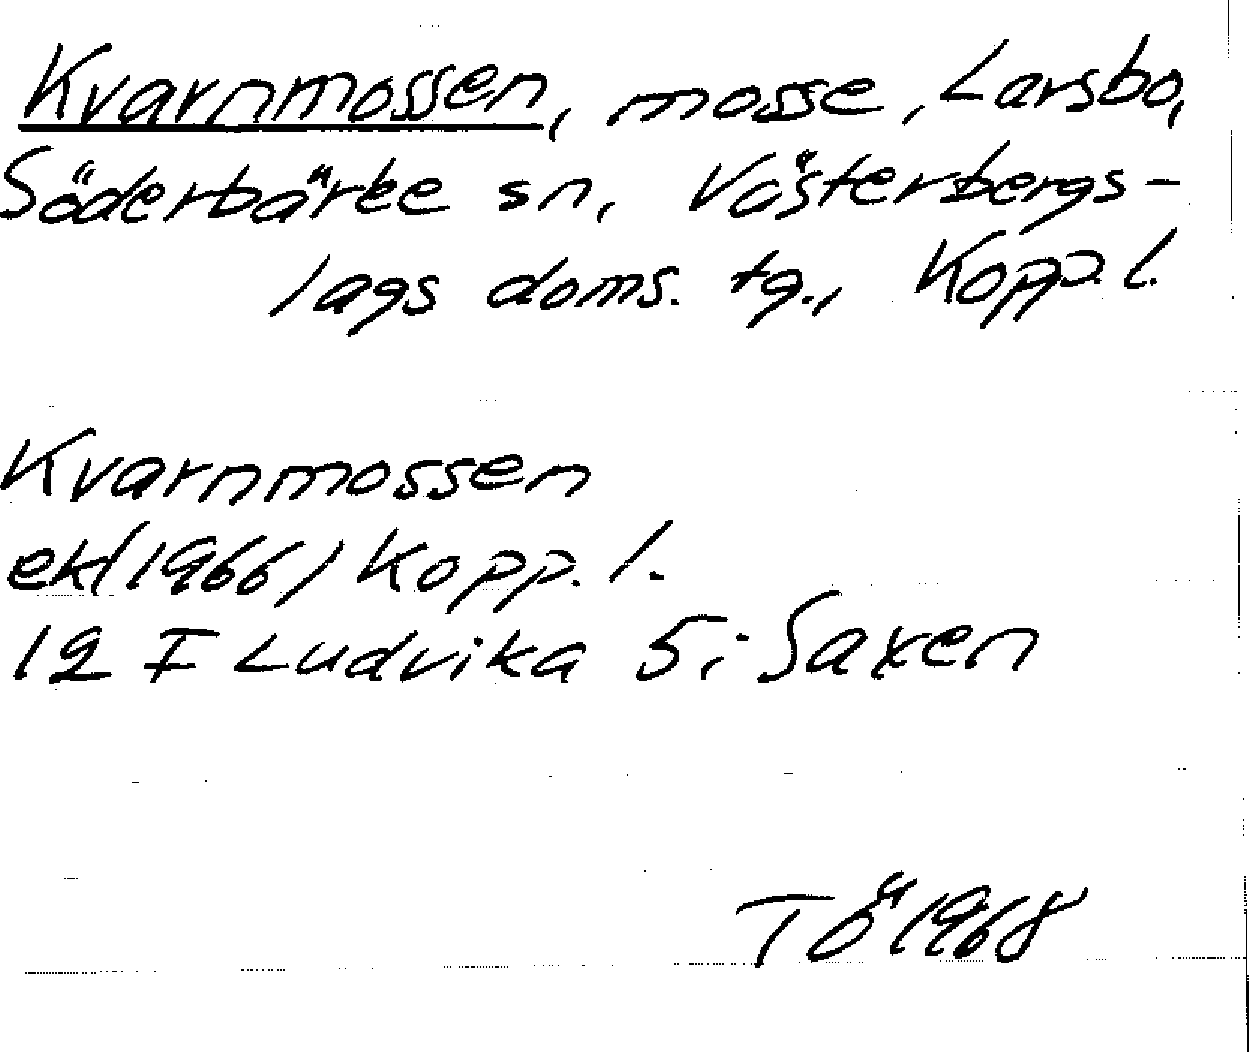 Kvarnmossen, mosse, Larsbo,
Söderbärke sn, Västerbergs-
lags doms. tg., Kopp. l.
Kvarnmossen
ek (1966) Kopp. l.
12 F Ludvika 5i Saxen
TÖ 1968